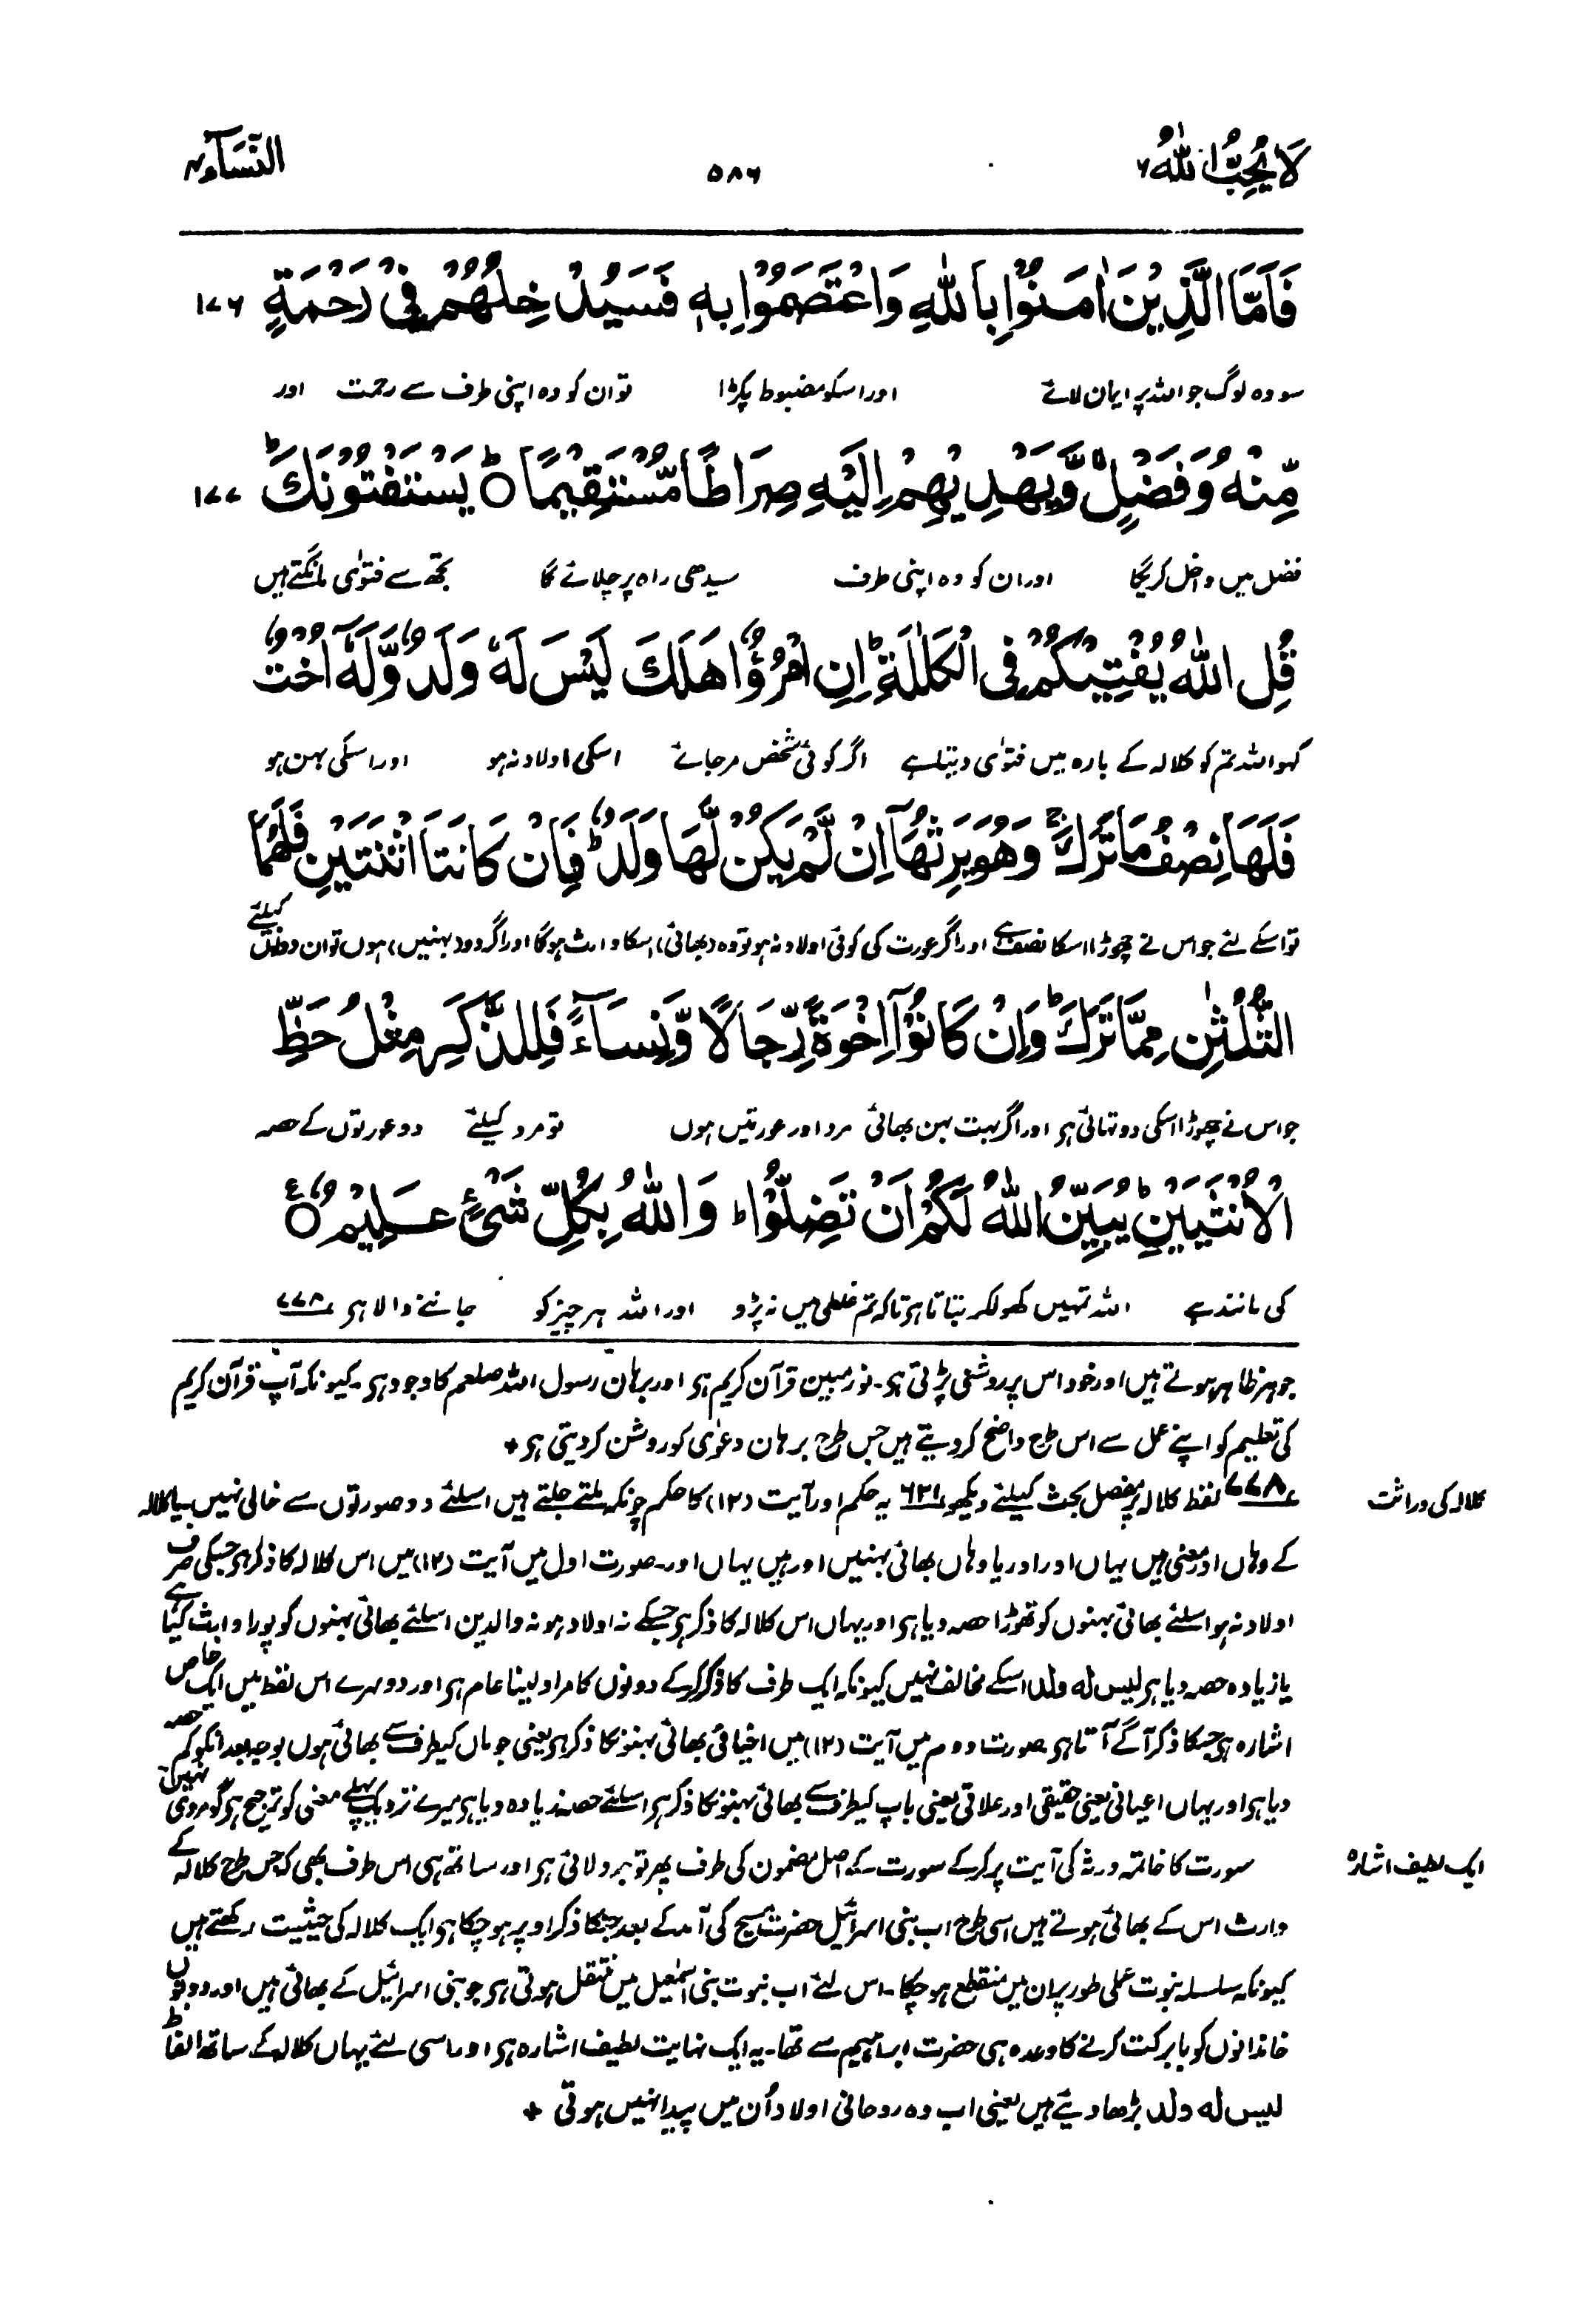 لَا يُحِبُّ اللهُ ۶
۵۸۶
النِّسَآء ۴
فَاَمَّا الَّذِيْنَ اٰمَنُوْا بِاللّٰهِ وَاعْتَصَمُوْا بِهٖ فَسَيُدْخِلُهُمْ فِيْ رَحْمَةٍ ۱۷۶
سو وہ لوگ جو اللہ پر ایمان لائے اور اسکو مضبوط پکڑا تو ان کو وہ اپنی طرف سے رحمت اور
مِّنْهُ وَفَضْلٍ وَّيَهْدِيْهِمْ اِلَيْهِ صِرَاطًا مُّسْتَقِيْمًا ؕ ○ يَسْتَفْتُوْنَكَ ؕ ۱۷۷
فضل میں داخل کریگا اور ان کو وہ اپنی طرف سیدھی راہ پر چلائے گا تجھ سے فتوٰی مانگتے ہیں
قُلِ اللّٰهُ يُفْتِيْكُمْ فِى الْكَلٰلَةِ ؕ اِنِ امْرُؤٌا هَلَكَ لَيْسَ لَهٗ وَلَدٌ وَّلَهٗٓ اُخْتٌ
کہو اللہ تم کو کلالہ کے بارہ میں فتوٰی دیتا ہے اگر کوئی شخص مرجائے اسکی اولاد نہ ہو اور اسکی بہن ہو
فَلَهَا نِصْفُ مَا تَرَكَ ۚ وَهُوَ يَرِثُهَآ اِنْ لَّمْ يَكُنْ لَّهَا وَلَدٌ ؕ فَاِنْ كَانَتَا اثْنَتَيْنِ فَلَهُمَا
تو اسکے لئے جو اس نے چھوڑا اسکا نصف ہے اور اگر عورت کی کوئی اولاد نہ ہو تو وہ (بھائی) اسکا وارث ہوگا اور اگر دو (بہنیں) ہوں تو ان دونوں کیلئے
الثُّلُثٰنِ مِمَّا تَرَكَ ؕ وَاِنْ كَانُوْٓا اِخْوَةً رِّجَالًا وَّنِسَآءً فَلِلذَّكَرِ مِثْلُ حَظِّ
جو اس نے چھوڑا اسکی دو تہائی ہی اور اگر بہت بہن بھائی مرد اور عورتیں ہوں تو مرد کیلئے دو عورتوں کے حصہ
الْاُنْثَيَيْنِ ؕ يُبَيِّنُ اللّٰهُ لَكُمْ اَنْ تَضِلُّوْا ؕ وَاللّٰهُ بِكُلِّ شَيْءٍ عَلِيْمٌ ○ ع
کی مانند ہے اللہ تمہیں کھولکر بتاتا ہی تاکہ تم غلطی میں نہ پڑو اور اللہ ہر چیز کو جاننے والا ہی ۷۷۸
جوہر ظاہر ہوتے ہیں اور خود اس پر روشنی پڑتی ہی۔ نور مبین قرآن کریم ہی اور برہان رسول اللہ صلعم کا وجود ہی۔ کیونکہ آپ قرآن کریم
کی تعلیم کو اپنے عمل سے اس طرح واضح کر دیتے ہیں جس طرح برہان دعوٰی کو روشن کر دیتی ہی +
کلالہ کی وراثت
۷۷۸ لفظ کلالہ پر مفصل بحث کیلئے دیکھو ۶۳۱ یہ حکم اور آیت (۱۲) کا حکم چونکہ ملتے جلتے ہیں اسلئے دو صورتوں سے خالی نہیں۔ یا کلالہ
کے وہاں اور معنی ہیں یہاں اور اور یا وہاں بھائی بہنیں اور ہیں یہاں اور۔ صورت اول میں آیت (۱۲) میں اس کلالہ کا ذکر ہی جسکی صرف
اولاد نہ ہو اسلئے بھائی بہنوں کو تھوڑا حصہ دیا ہی اور یہاں اس کلالہ کا ذکر ہی جسکے نہ اولاد ہو نہ والدین اسلئے بھائی بہنوں کو پورا وارث کیا ہے
یا زیادہ حصہ دیا ہی لیس لہ ولد اسکے مخالف نہیں کیونکہ ایک طرف کا ذکر کرکے دونوں کا مراد لینا عام ہی اور دوسرے اس لفظ میں ایک خاص
اشارہ ہی جسکا ذکر آگے آتا ہی صورت دوم میں آیت (۱۲) میں اخیافی بھائی بہنوں کا ذکر ہی یعنی جو ماں کیطرف سے بھائی ہوں بوجہ بعد انکو کم حصہ
دیا ہی اور یہاں اعیانی یعنی حقیقی اور علاتی یعنی باپ کیطرف سے بھائی بہنوں کا ذکر ہی اسلئے حصہ زیادہ دیا ہی میرے نزدیک پہلے معنی کو ترجیح ہی گو مروی نہیں
ایک لطیف اشارہ
سورت کا خاتمہ ورثہ کی آیت پر کرکے سورت کے اصل مضمون کی طرف پھر توجہ دلائی ہی اور ساتھ ہی اس طرف بھی کہ جس طرح کلالہ کے
وارث اس کے بھائی ہوتے ہیں اسی طرح اب بنی اسرائیل حضرت مسیح کی آمد کے بعد جنکا ذکر اوپر ہو چکا ہی ایک کلالہ کی حیثیت رکھتے ہیں
کیونکہ سلسلہ نبوت عملی طور پر ان میں منقطع ہو چکا۔ اس لئے اب نبوت بنی اسمٰعیل میں منتقل ہوتی ہی جو بنی اسرائیل کے بھائی ہیں اور دونوں
خاندانوں کو بابرکت کرنے کا وعدہ ہی حضرت ابراہیم سے تھا۔ یہ ایک نہایت لطیف اشارہ ہی اور اسی لئے یہاں کلالہ کے ساتھ الفاظ
لیس لہ ولد بڑھا دیئے ہیں یعنی اب وہ روحانی اولاد اُن میں پیدا نہیں ہوتی +